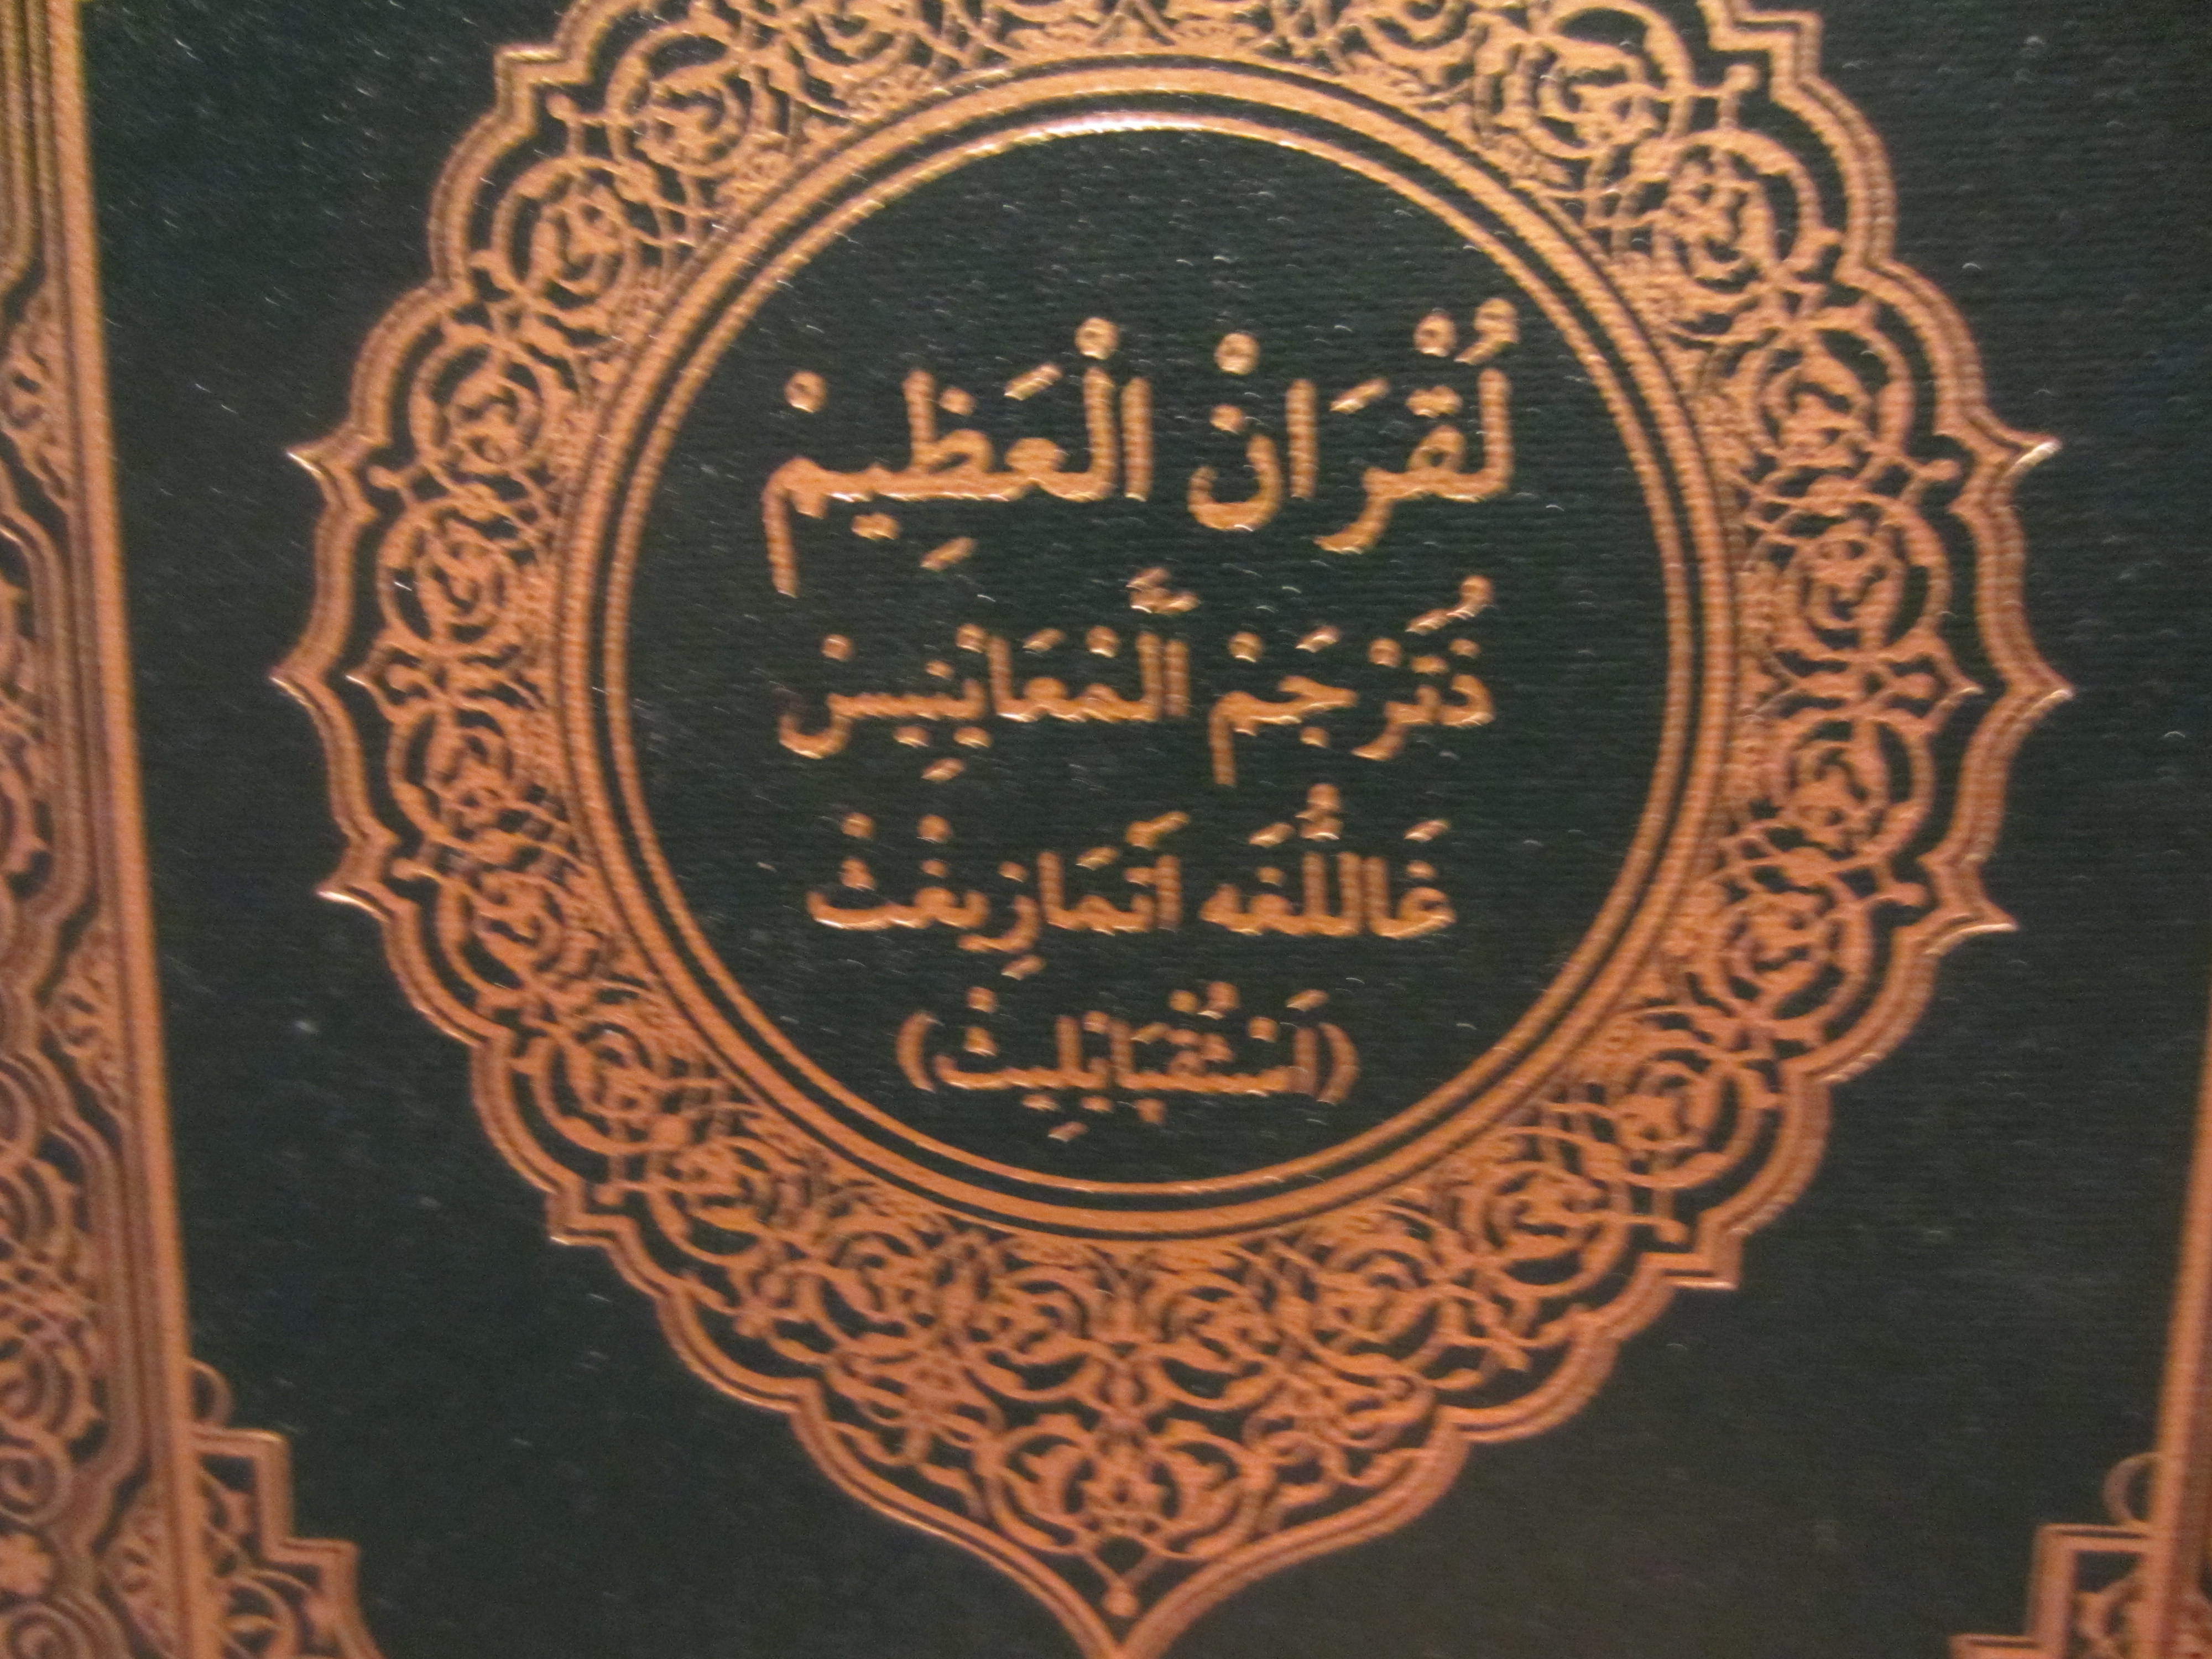 لُقْرَانْ الْعَظِيمْ
ذَتَرْجَمْ الْمَعَانِيسْ
غَاللُّغَه اَتَمَازِيغْثْ
(اَسْثَقْبَايْلِيثْ)